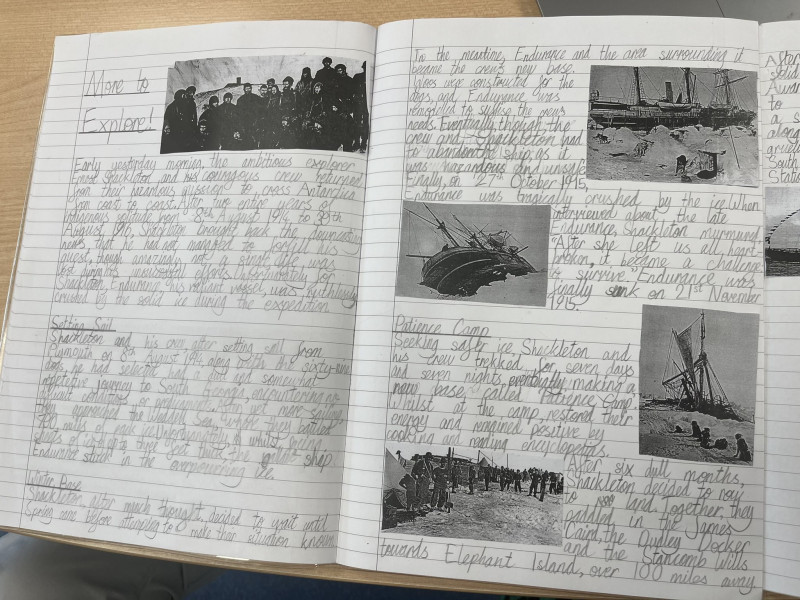 More to
Explore!
Early yesterday morning, the ambitious explorer
Ernest Shackleton and his courageous crew returned
from their hazardous mission to cross Antarctica
from coast to coast. After two entire years of
solitude from 8th August 1914 to 30th
August 1916, Shackleton brought back the
news that he had not managed to forfill his
quest, though amazingly, not a single life was
lost despite his efforts. Unfortunately for
Shackleton, Endurance, his valiant vessel, was ruthlessly
crushed by the solid ice during the expedition.
Setting Sail
Shackleton and his crew, after setting sail from
Plymouth on 8th August 1914, along with the sixty-nine
dogs, he had selected, had a and somewhat
repetitive journey to South Georgia, encountering no
difficult conditions or After yet more sailing,
they approached the Weddell Sea, where they battled
miles of pack ice. Unfortunately, whilst facing
sheets of ice up to three feet thick, the ship
Endurance stuck in the overpowering ice.
Winter Base
Shackleton, after much thought, decided to wait until
Spring came before attempting to make their situation known.
In the meantime, Endurance and the area surrounding it
became the crew's new base.
were constructed for the
dogs, and Endurance was
to suffise the crew's
needs. Eventually, though, the
crew and Shackleton had
to abandon the ship, as it
was hazardous and unsafe.
Finally, on 27th October 1915,
Endurance was tragically crushed by the ice. When
interviewed about the late
Endurance, Shackleton murmured,
"After she left us all heart-
broken, it became a challenge
to survive." Endurance was
finally sunk on 21st November
1915.
Patience Camp
Seeking safer ice, Shackleton and
his crew trekked for seven days
and seven nights, eventually making a
new base, called Patience Camp.
Whilst at the camp, restored their
energy and remained positive by
cooking and reading encyclopedias.
After six dull months,
Shackleton decided to
to land. Together, they
paddled in the James
Caird, the Dudley Docker
and the Stancomb Wills
towards Elephant Island, over 100 miles away
After
solid
to
a s
along
South
Statio